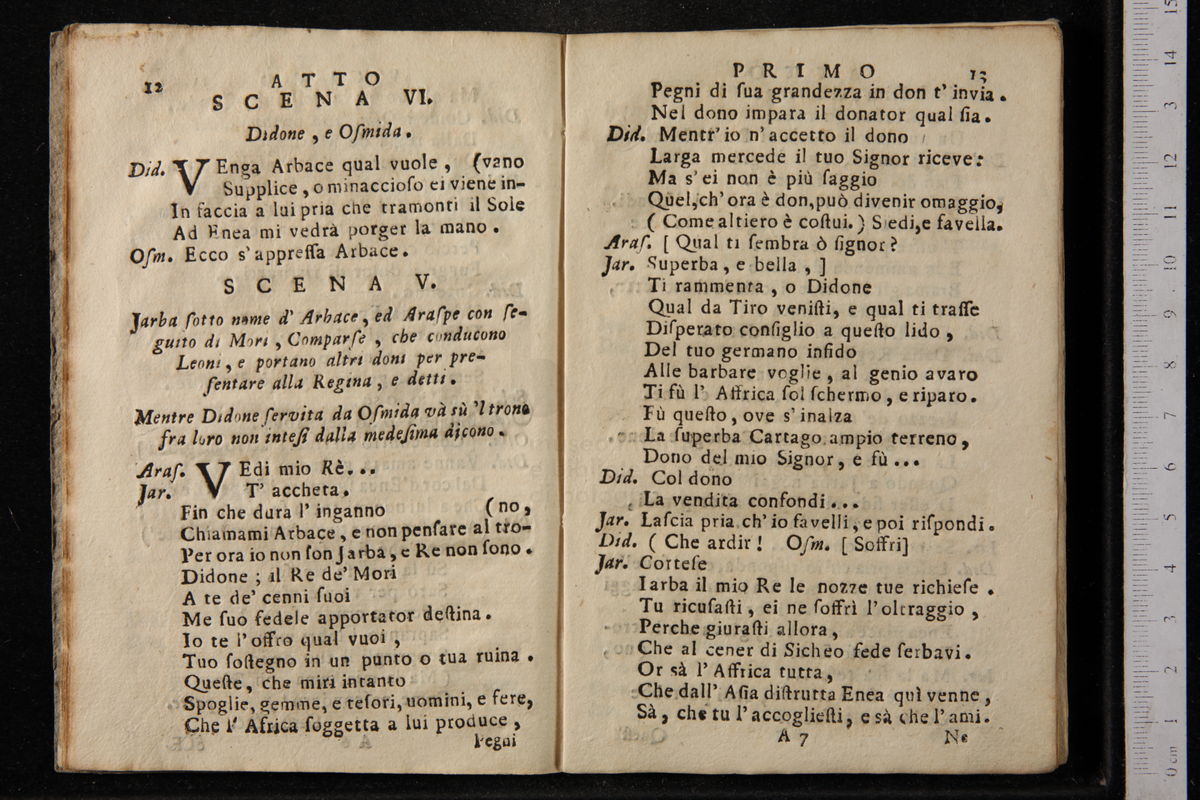 12 ATTO
SCENA VI.
Didone, e Oſmida.
Did. VEnga Arbace qual vuole, (vano
Supplice, o minaccioſo ei viene in-
In faccia a lui pria che tramonti il Sole
Ad Enea mi vedrà porger la mano.
Oſm. Ecco s'appreſſa Arbace.
SCENA V.
Jarba ſotto nome d' Arbace, ed Araſpe con ſe-
guito di Mori, Comparſe, che conducono
Leoni, e portano altri doni per pre-
ſentare alla Regina, e detti.
Mentre Didone ſervita da Oſmida và sù 'l trono
fra loro non inteſi dalla medeſima dicono.
Araſ. VEdi mio Rè...
Jar. T' accheta.
Fin che dura l' inganno (no,
Chiamami Arbace, e non penſare al tro-
Per ora io non ſon Jarba, e Re non ſono.
Didone; il Re de' Mori
A te de' cenni ſuoi
Me ſuo fedele apportator deſtina.
Io te l'offro qual vuoi,
Tuo ſoſtegno in un punto o tua ruina.
Queſte, che miri intanto
Spoglie, gemme, e teſori, uomini, e fere,
Che l' Africa ſoggetta a lui produce,
Pegni
PRIMO 13
Pegni di ſua grandezza in don t' invia.
Nel dono impara il donator qual ſia.
Did. Mentr' io n' accetto il dono
Larga mercede il tuo Signor riceve:
Ma s' ei non è più ſaggio
Quel, ch' ora è don, può divenir omaggio,
( Come altiero è coſtui.) Siedi, e favella.
Araſ. [ Qual ti ſembra ò ſignor?
Jar. Superba, e bella, ]
Ti rammenta, o Didone
Qual da Tiro veniſti, e qual ti traſſe
Diſperato conſiglio a queſto lido,
Del tuo germano infido
Alle barbare voglie, al genio avaro
Ti fù l' Affrica ſol ſchermo, e riparo.
Fù queſto, ove s' inalza
La ſuperba Cartago ampio terreno,
Dono del mio Signor, e fù...
Did. Col dono
La vendita confondi...
Jar. Laſcia pria ch' io favelli, e poi riſpondi.
Did. ( Che ardir! Oſm. [ Soffri]
Jar. Corteſe
Iarba il mio Re le nozze tue richieſe.
Tu ricuſaſti, ei ne ſoffrì l'oltraggio,
Perche giuraſti allora,
Che al cener di Sicheo fede ſerbavi.
Or sà l' Affrica tutta,
Che dall' Aſia diſtrutta Enea quì venne,
Sà, che tu l'accoglieſti, e sà che l'ami.
A 7 Ne